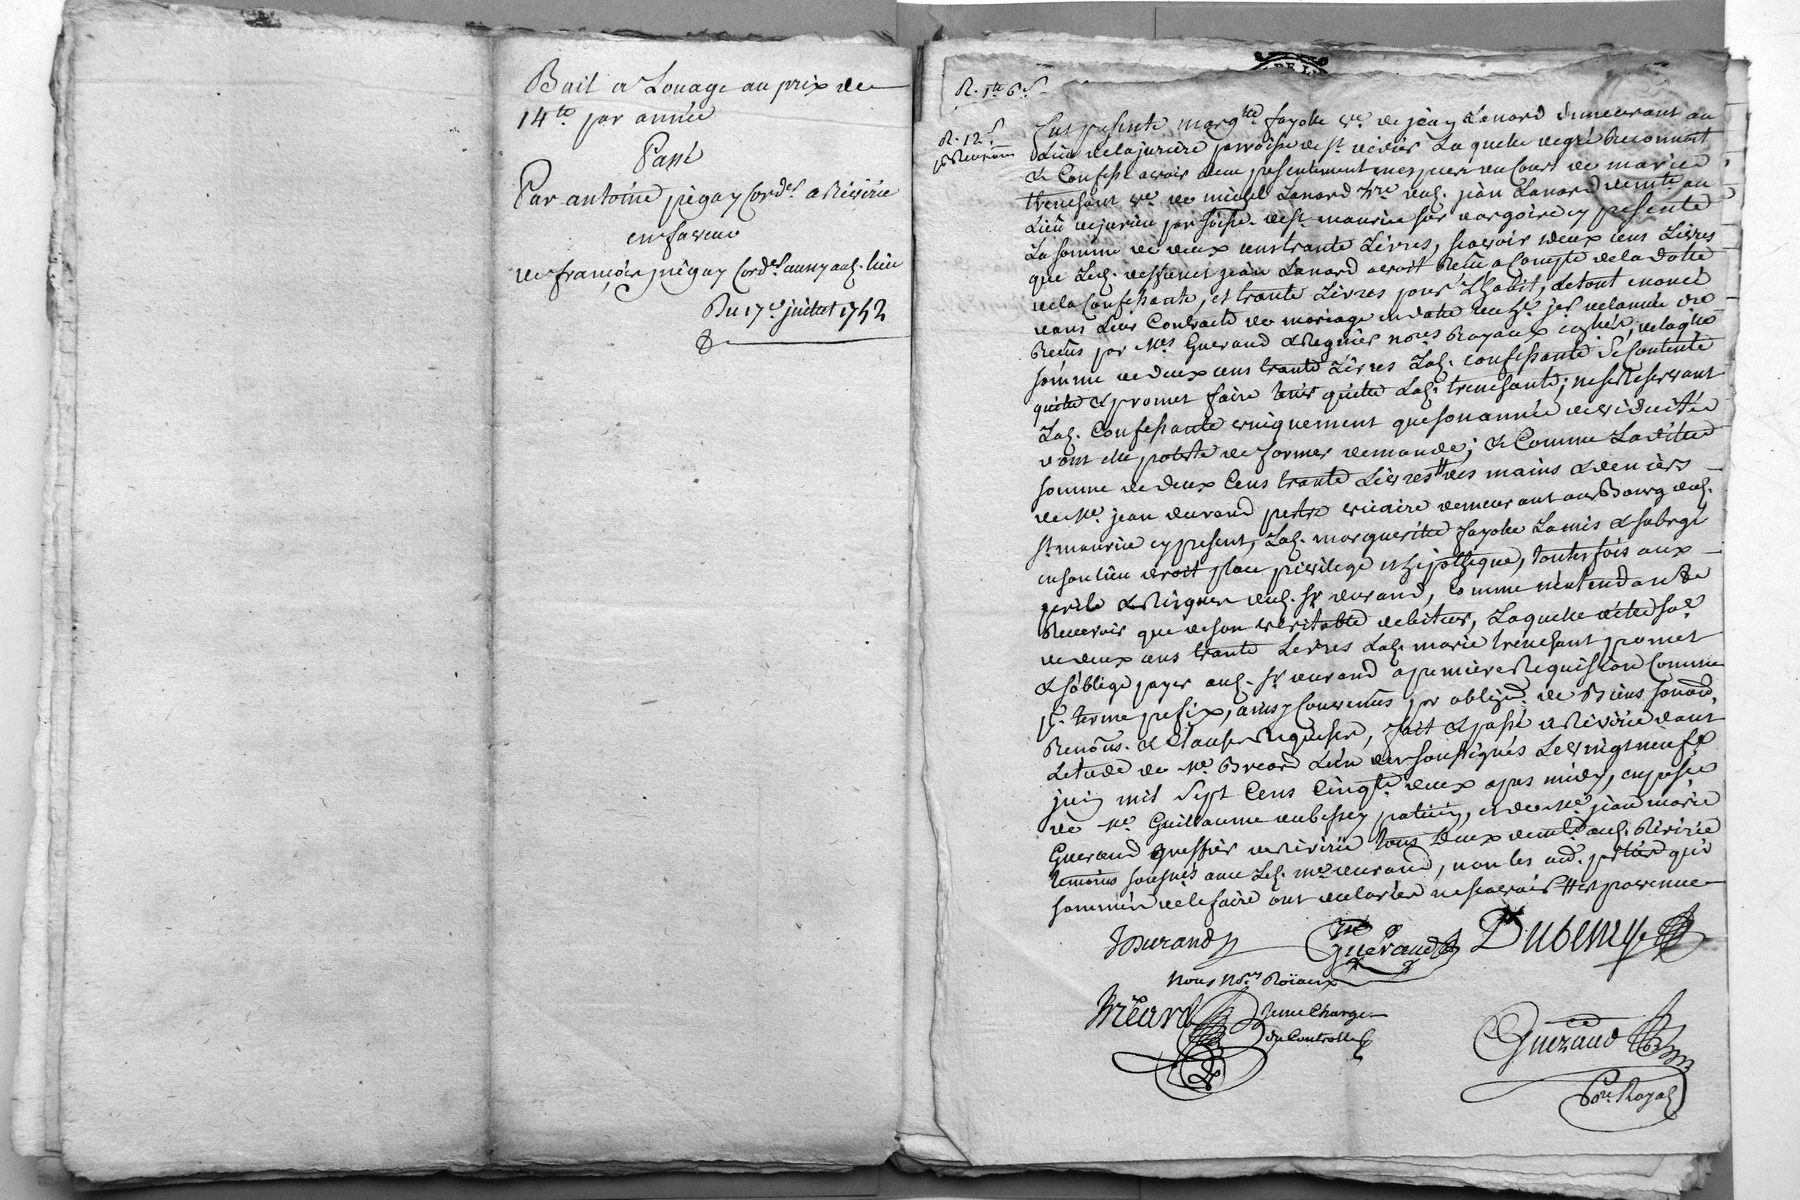 Bail a Louage au prix de
14lt par année
Passé
Par antoine pigay Cordr a Rivirie
en faveur
de françois pigay Cordr aussy audt. lieu
Du 17e juillet 1752
R. 1lt 6s
R. 12s
DE L
fut presente margte fayolle ve de jean Lanard demeurant au
Lieu de lajurarie parroisse de st didier Laquelle de gré Reconnait
& Confesse avoir eu presentement
trenchant ve de michel Lanard dudt. jean Lanard demte au
Lieu de jurarie parroisse de st maurice sur dargoire cy presente
La somme de deux cens trante Livres, scavoir deux cens Livres
que Led. deffunct jean Lanard avoit Reçu a Compte de la dotte
de la Confessante, et trante Livres pour L'habit, le tout enoncé
dans leur Contract de mariage en datte
Reçus par Mes Guerand & Regnier nores Royaux
somme de deux cens trante Livres Lad. confessante se contente
quitte & promet faire tenir quitte Lad. trenchante; ne se Reservant
Lad. Confessante uniquement que son année de viduitée
dont elle proteste de former demande; & Comme Laditte
somme de deux Cens trante Livres des mains & deniers
de Me jean durand pretre vicaire demeurant au Bourg dud.
st maurice cy present, Lad. margueritte fayolle La mis & subrogé
en son lieu droit place privilege et hipotheque, toutesfois aux
perils & Risques dud. sr durand, Comme n'entendant Re
Recevoir que de son veritable debiteur, Laquelle ditte some
de deux cens trante Livres Lad. marie trenchant promet
& s'oblige payer aud. sr durand a premiere Requisition Comme
pr. terme prefix, ainsy Convenus par obligon. de Biens
Renons. & clauses Requises, fait & passé a Rivirie dans
Letude de Me Breard L'un des soussignés Le vingt neuf
juin mil sept Cens Cinqte deux apres midy, en presence
de Me Guillaume dubessey praticien, et de Me jean marie
Guerand greffier de Rivirie tous deux demts aud. Rivirie
temoins soussignés avec Led. me durand, non les autres parties qui
sommées de le faire ont declarées ne scavoir
JDurand
Guerand
Dubessey
nous nores Roiaux
Breard
Jeune Charge
du Controlle
Guerand
nore Royal